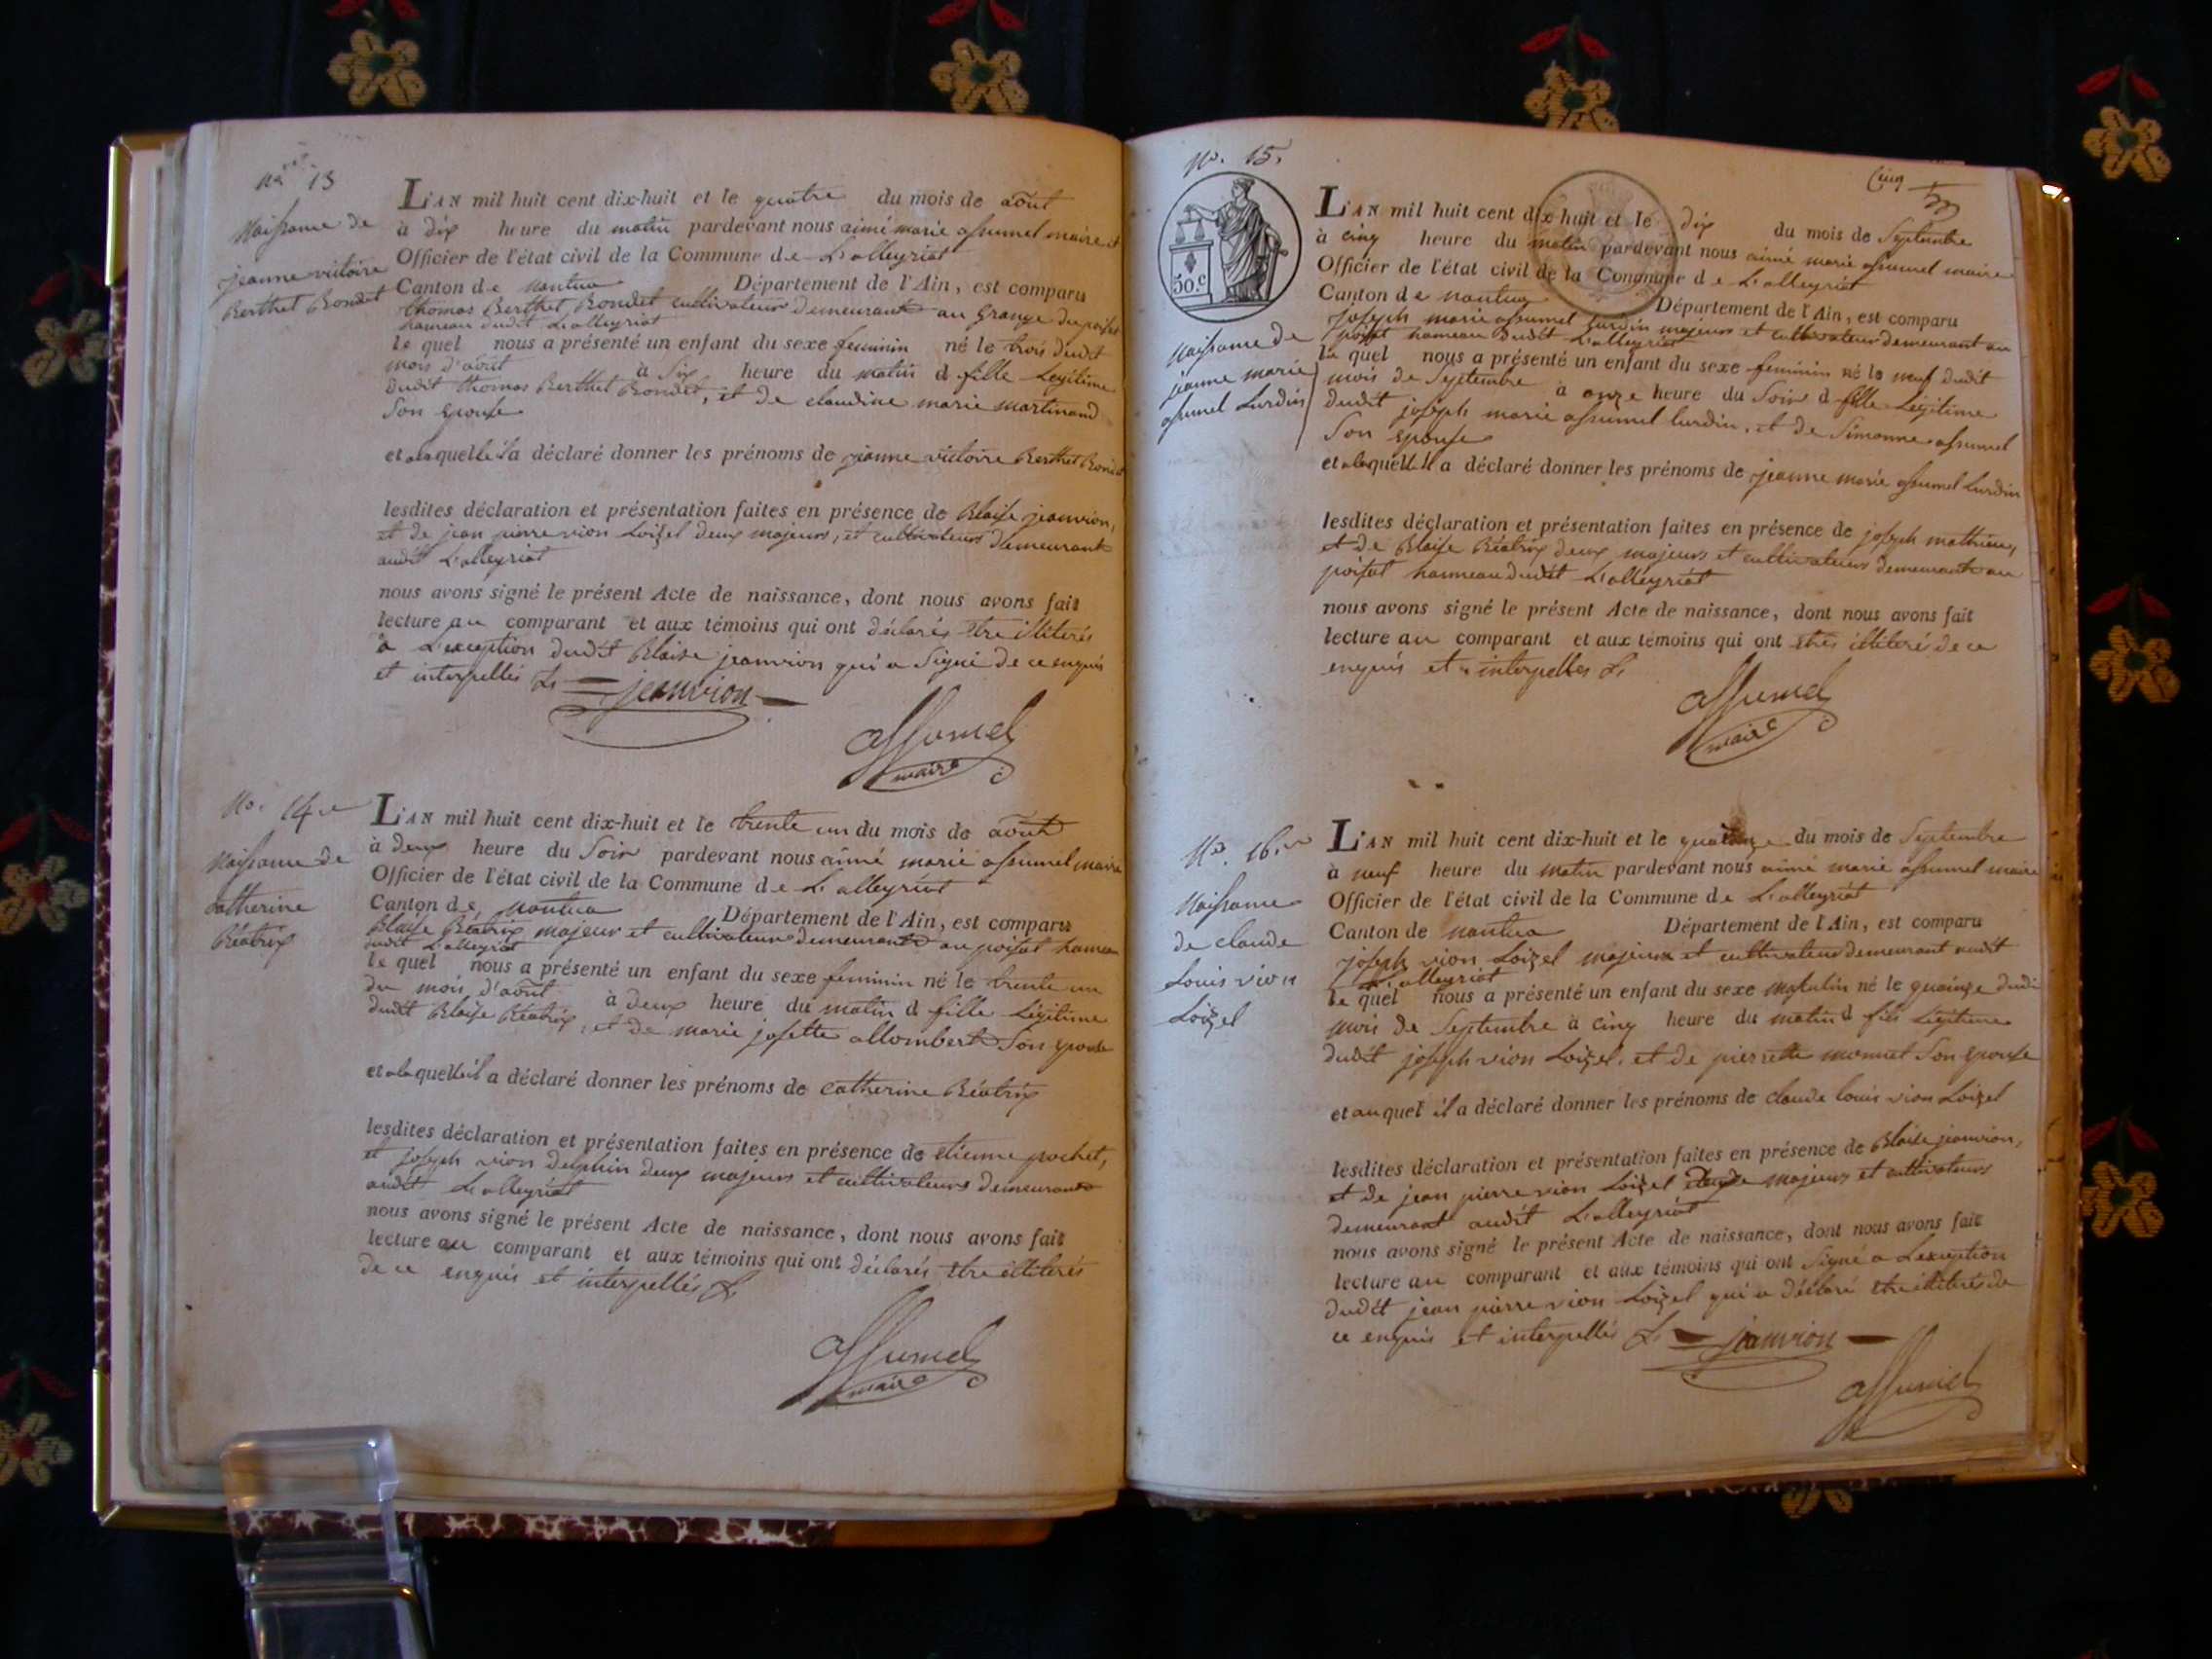 No. 13
Naissance de
jeanne victoire
Berthet Bondet
L'AN mil huit cent dix-huit et le quatre du mois de août
à dix heure du matin pardevant nous aimé marie assumel maire et
Officier de l'état civil de la Commune de L'alleyriat
Canton de nantua Département de l'Ain, est comparu
thomas Berthet Bondet cultivateur demeurant au Grange du poisat
hameau dudit Lalleyriat
le quel nous a présenté un enfant du sexe feminin né le trois dudit
mois d'août à Six heure du matin d fille Legitime
dudit thomas Berthet Bondet, et de claudine marie martinand
Son epouse
et a la quelle il a déclaré donner les prénoms de jeanne victoire Berthet Bondet
lesdites déclaration et présentation faites en présence de Blaise jeanvion,
et de jean pierre vion Loizel deux majeurs, et cultivateurs demeurant
audit L'alleyriat
nous avons signé le présent Acte de naissance, dont nous avons fait
lecture au comparant et aux témoins qui ont déclarés etre illiterés
à L'exception dudit Blaise jeanvion qui a Signé de ce enquis
et interpellés
jeanvion
assumel
maire
No. 14
Naissance de
catherine
Béatrix
L'AN mil huit cent dix-huit et le trente un du mois de août
à deux heure du Soir pardevant nous aimé marie assumel maire
Officier de l'état civil de la Commune de L'alleyriat
Canton de nantua Département de l'Ain, est comparu
Blaise Béatrix majeur et cultivateur demeurant au poisat hameau
dudit L'alleyriat
le quel nous a présenté un enfant du sexe feminin né le trente un
du mois d'août à deux heure du matin d fille Légitime
dudit Blaise Béatrix, et de marie josette allombert Son epouse
et a la quelle il a déclaré donner les prénoms de catherine Béatrix
lesdites déclaration et présentation faites en présence de etienne pochet,
et joseph vion delphin deux majeurs et cultivateurs demeurant
audit L'alleyriat
nous avons signé le présent Acte de naissance, dont nous avons fait
lecture au comparant et aux témoins qui ont déclarés etre illiterés
de ce enquis et interpellés
assumel
maire
No. 15.
cinq
50.c
Naissance de
jeanne marie
assumel Lurdin
L'AN mil huit cent dix-huit et le dix du mois de Septembre
à cinq heure du matin pardevant nous aimé marie assumel maire
Officier de l'état civil de la Commune de L'alleyriat
Canton de nantua Département de l'Ain, est comparu
joseph marie assumel Lurdin majeur et cultivateur demeurant au
poisat hameau dudit L'alleyriat
le quel nous a présenté un enfant du sexe feminin né le neuf dudit
mois de Septembre à onze heure du Soir d fille Légitime
dudit joseph marie assumel lurdin, et de Simonne assumel
Son epouse
et a laquelle il a déclaré donner les prénoms de jeanne marie assumel Lurdin
lesdites déclaration et présentation faites en présence de joseph mathieu,
et de Blaise Béatrix deux majeurs et cultivateurs demeurant au
poisat hameau dudit L'alleyriat
nous avons signé le présent Acte de naissance, dont nous avons fait
lecture au comparant et aux témoins qui ont etres illiteré de ce
enquis et interpellés
assumel
maire
No. 16
Naissance
de claude
Louis vion
Loizel
L'AN mil huit cent dix-huit et le du mois de Septembre
à neuf heure du matin pardevant nous aimé marie assumel maire
Officier de l'état civil de la Commune de L'alleyriat
Canton de nantua Département de l'Ain, est comparu
joseph vion Loizel majeur et cultivateur demeurant audit
L'alleyriat
le quel nous a présenté un enfant du sexe maskulin né le quainze dudit
mois de Septembre à cinq heure du matin d fils Légitime
dudit joseph vion Loizel, et de pierrette monnet Son epouse
et au quel il a déclaré donner les prénoms de claude louis vion Loizel
lesdites déclaration et présentation faites en présence de Blaise jeanvion,
et de jean pierre vion Loizel majeurs et cultivateurs
demeurant audit L'alleyriat
nous avons signé le présent Acte de naissance, dont nous avons fait
lecture au comparant et aux témoins qui ont Signé a L'exception
dudit jean pierre vion Loizel qui a déclaré etre illiterés de
ce enquis et interpellés
jeanvion
assumel